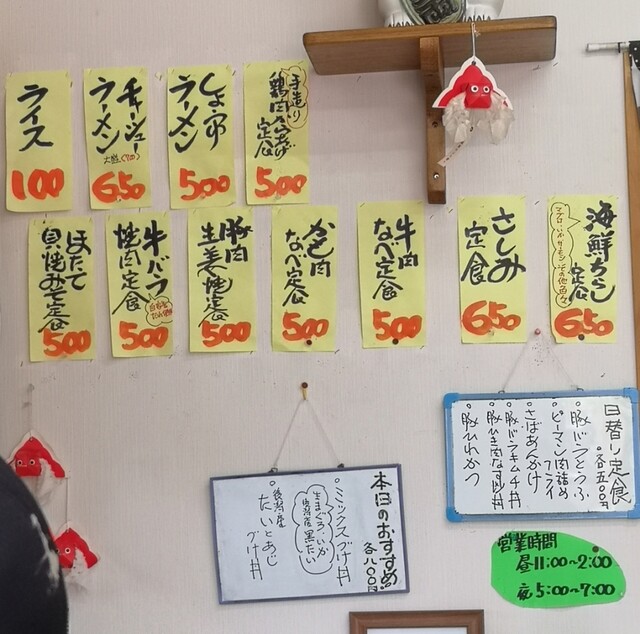 手造り
鶏肉
定食
500
しょうゆ
ラーメン
500
チャーシュー
ラーメン
大盛
650
ライス
100
海鮮ちらし
定食
650
さしみ
定食
650
牛肉
なべ定食
500
かも肉
なべ定食
500
豚肉
生姜焼定食
500
牛バラ
焼肉定食
500
ほたて
貝焼みそ定食
500
日替り定食
各五〇〇円
豚バラとうふ
ピーマン肉詰め
フライ
さばあんかけ
豚バラキムチ丼
豚ひき肉なす炒丼
豚ひれかつ
本日のおすすめ
各八〇〇円
ミックスづけ丼
たいとあじ
づけ丼
営業時間
昼11:00~2:00
夜5:00~7:00